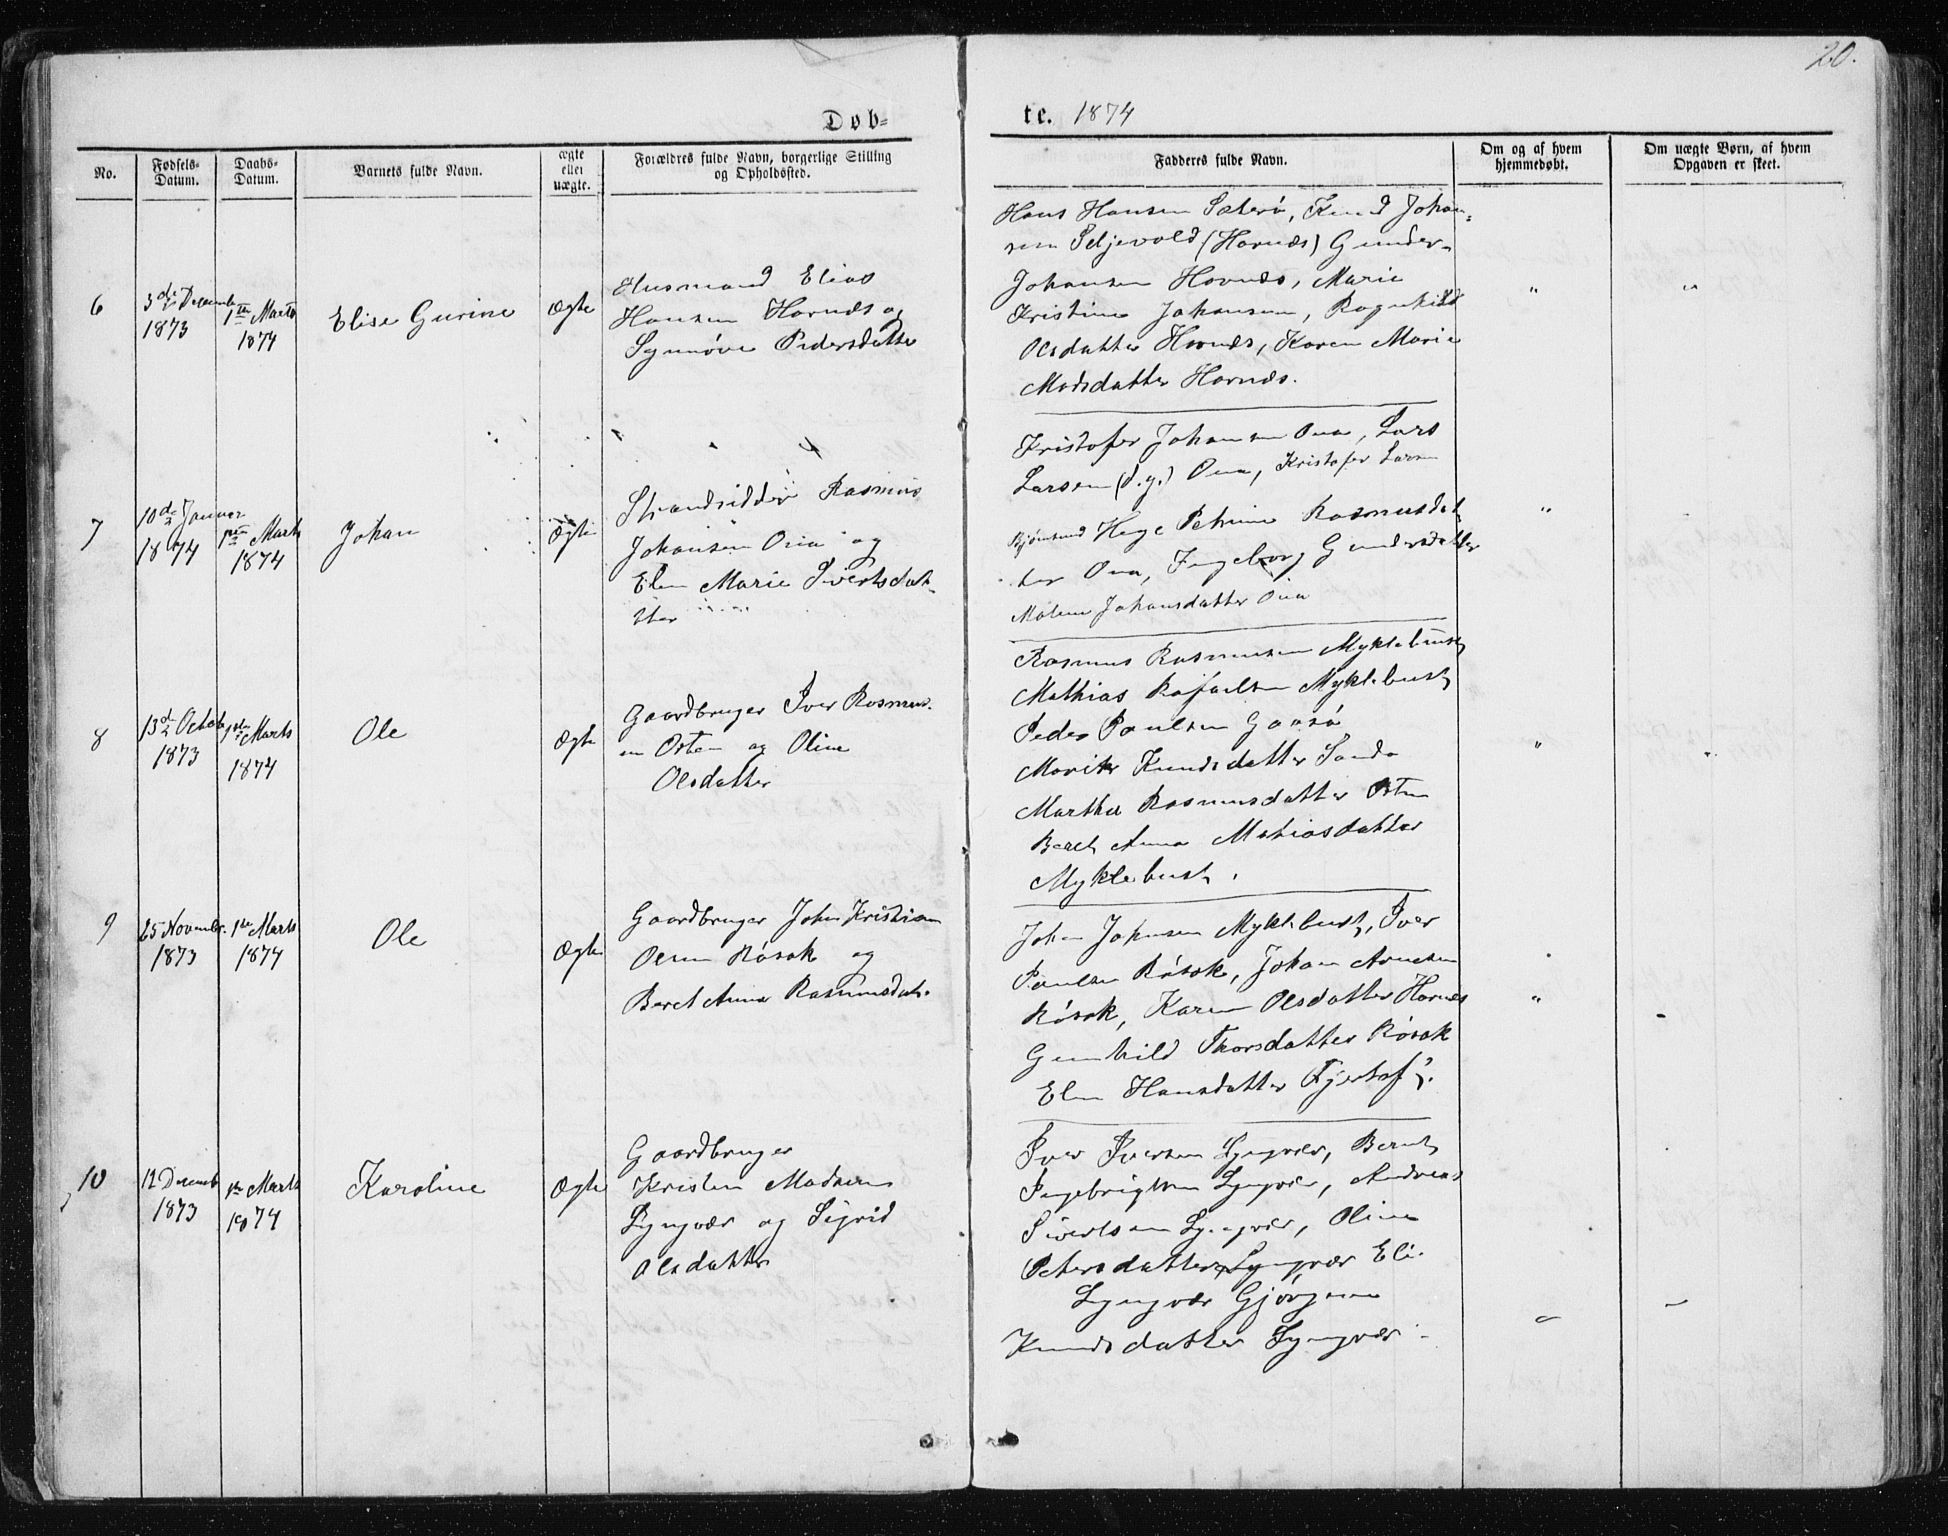 20.
Døb-
te. 1874
No.
Fødsels-
Datum.
Daabs-
Datum.
Barnets fulde Navn.
ægte
eller
uægte.
Forældres fulde Navn, borgerlige Stilling
og Opholdssted.
Fadderes fulde Navn.
Om og af hvem
hjemmedøbt.
Om uægte Børn, af hvem
Opgaven er skeet.
6
3die Decemb
1873
1ste Marts
1874
Elise Gurine
Ægte
Husmand Elias
Hansen Harnæs og
Synnøve Pedersdatter
Hans Hansen Sæterø, Knud Johan-
sen Seljevold (Harnæs) Gunder
Johansen Harnæs, Marie
Kristine Johansen, Ragnhild
Olsdatter Harnæs, Karen Marie
Madsdatter Harnæs.
"
"
7
10de Januar
1874
1ste Marts
1874
Johan
Ægte
Strandsidder Rasmus
Johansen Ona og
Elen Marie Sivertsdat-
ter
Kristofer Johansen Ona, Lars
Larsen (d.y.) Ona, Kristofer Larsen
Bjørnsund Hege Petrine Rasmusdat
ter Ona, Ingeborg Gundersdatter
Malene Johansdatter Ona
"
8
13de Octob
1873
1ste Marts
1874
Ole
Ægte
Gaardbruger Iver Rasmus-
en Orten og Oline
Olsdatter
Rasmus Rasmusen Myklebust
Mathias Rafaelsen Myklebust
Peder Paulsen Gaasø
Marit Knudsdatter Sandø
Marthe Rasmusdatter Orten
Beret Anna Matiasdatter
Myklebust.
"
"
9
25 Novembr.
1873
1ste Marts
1874
Ole
Ægte
Gaardbruger John Kristian
Olsen Røsok og
Beret Anna Rasmusdat.
Johan Johnsen Myklebust, Iver
Paulsen Røsok, Johan Arnesen
Røsok, Karen Olsdatter Harnæs
Gunhild Thorsdatter Røsok
Elen Hansdatter Fjertof.
"
10
12 Decemb
1873
1ste Marts
1874
Karoline
Ægte
Gaardbruger
Kristen Madsen
Lyngvær og Sigrid
Olsdatter
Iver Iversen Lyngvær, Bernt
Ingebrigtsen Lyngvær, Andreas
Sivertsen Lyngvær, Oline
Petersdatter Lyngvær Eli
Lyngvær Gjørgine
Knudsdatter Lyngvær